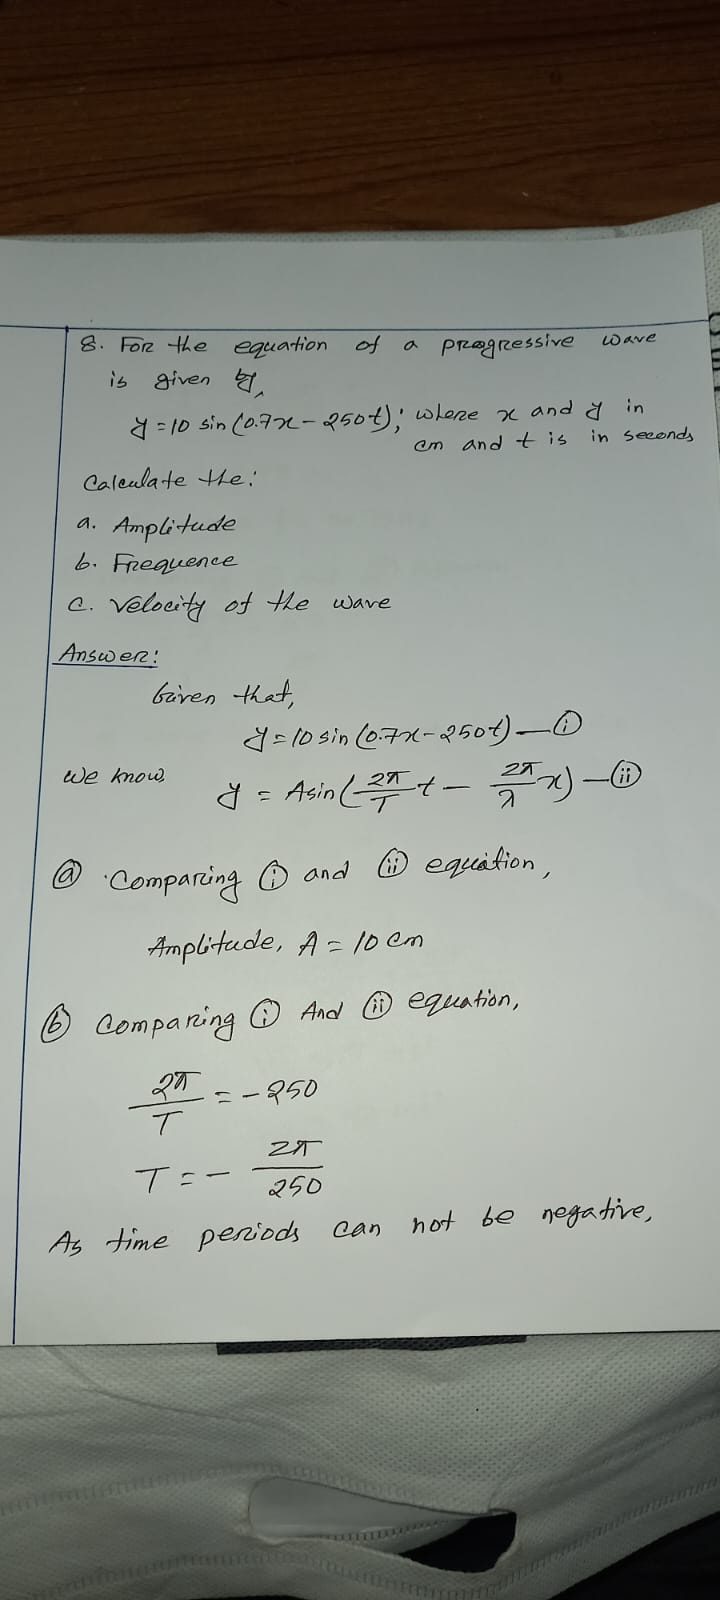 8. For the equation of a progressive wave
is given by,
y = 10 sin (0.7x - 250t); where x and y in
cm and t is in seconds
Calculate the:
a. Amplitude
b. Frequence
c. Velocity of the wave
Answer:
Given that,
y = 10 sin (0.7x - 250t) — (i)
We know, y = A sin (2π/T t - 2π/λ x) — (ii)
(a) Comparing (i) and (ii) equation,
Amplitude, A = 10 cm
(b) Comparing (i) And (ii) equation,
2π/T = - 250
T = - 2π/250
As time periods can not be negative,